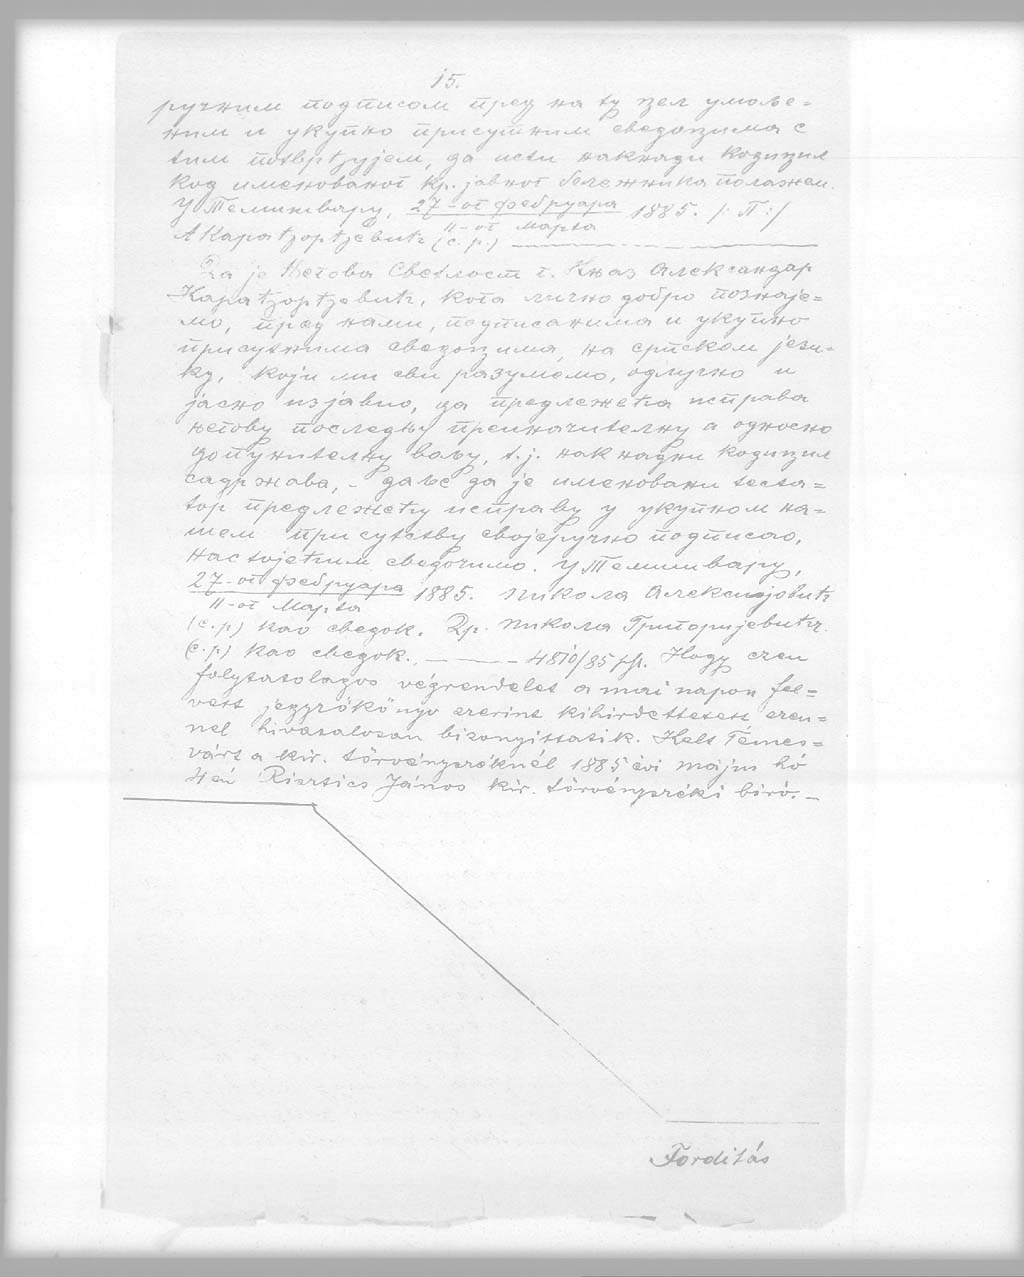 15.
ручним подписом пред на ту цел умоље=
ним и укупно присутним сведоцима с
тим потврђујем, да исти накнади кодицил
код именованог кр. јавног бележника полажем.
У Темишвару, 27-ог фебруара 1885. /: П :/
11-ог Марта
А Карађорђевић (с. р.)
Да је Његова Светлост г. Књаз Александар
Карађорђевић, кога лично добро познаје=
мо, пред нами, подписанима и укупно
присутнима сведоцима, на српском јези=
ку, који ми сви разумемо, одлучно и
јасно изјавио, да предлежећа исправа
његову последњу преиначителну а односно
допунителну вољу, т. ј. накнадни кодицил
садржава, – даље да је именовани теста=
тор предлежећу исправу у укупном на=
шем присутству својеручно подписао,
настојећим сведочимо. У Темишвару,
27-ог фебруара 1885. Никола Алексијовић
11-ог Марта
(с. р.) као сведок. Др. Никола Григоријевић.
(с. р.) као сведок. 4810/85 p/h. Hogy ezen
folytatolagos végrendelet a mai napon fel=
vett jegyzőkönyv szerint kihirdettetett ezen=
nel hivatalosan bizonyittatik. Kelt Temes=
várt a kir. törvényszéknél 1885 évi május hó
4én Risztics János kir. törvényszéki biró. –
Forditás